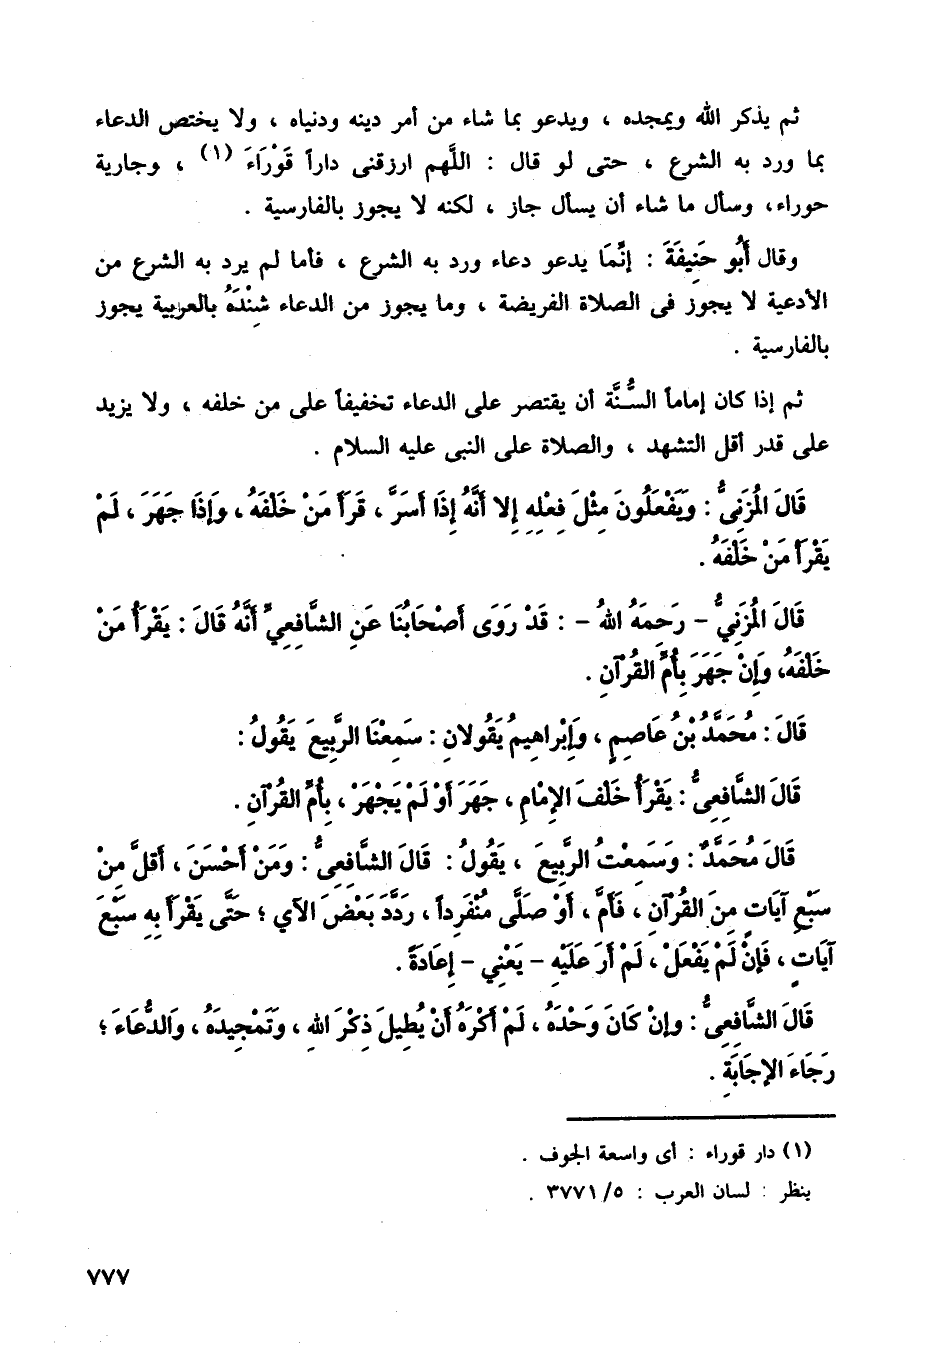 ثم يذكر الله ويمجده ، ويدعو بما شاء من أمر دينه ودنياه ، ولا يختص الدعاء
بما ورد به الشرع ، حتى لو قال : اللَّهم ارزقنى داراً قَوْرَاءَ (١) ، وجارية
حوراء، وسأل ما شاء أن يسأل جاز ، لكنه لا يجوز بالفارسية .
وقال أَبُو حَنِيفَةَ : إِنَّمَا يدعو دعاء ورد به الشرع ، فأما لم يرد به الشرع من
الأدعية لا يجوز فى الصلاة الفريضة ، وما يجوز من الدعاء عِنْدَهُ بالعربية يجوز
بالفارسية .
ثم إذا كان إماماً السُّنَّة أن يقتصر على الدعاء تخفيفاً على من خلفه ، ولا يزيد
على قدر أقل التشهد ، والصلاة على النبى عليه السلام .
قَالَ المُزَنِيُّ : وَيَفْعَلُونَ مِثْلَ فِعْلِهِ إِلا أَنَّهُ إِذَا أَسَرَّ ، قَرَأَ مَنْ خَلْفَهُ ، وَإِذَا جَهَرَ ، لَمْ
يَقْرَأْ مَنْ خَلْفَهُ .
قَالَ المُزَنِيُّ – رَحِمَهُ اللهُ – : قَدْ رَوَى أَصْحَابُنَا عَنِ الشَّافِعِيِّ أَنَّهُ قَالَ : يَقْرَأُ مَنْ
خَلْفَهُ، وَإِنْ جَهَرَ بِأُمِّ القُرْآنِ .
قَالَ : مُحَمَّدُ بْنُ عَاصِمٍ ، وَإِبْرَاهِيمُ يَقُولانِ : سَمِعْنَا الرَّبِيعَ يَقُولُ :
قَالَ الشَّافِعِيُّ : يَقْرَأُ خَلْفَ الإِمَامِ ، جَهَرَ أَوْ لَمْ يَجْهَرْ ، بِأُمِّ القُرْآنِ .
قَالَ مُحَمَّدٌ : وَسَمِعْتُ الرَّبِيعَ ، يَقُولُ : قَالَ الشَّافِعِيُّ : وَمَنْ أَحْسَنَ ، أَقَلَّ مِنْ
سَبْعِ آيَاتٍ مِنَ القُرْآنِ ، فَأَمَّ ، أَوْ صَلَّى مُنْفَرِداً ، رَدَّدَ بَعْضَ الآيِ ؛ حَتَّى يَقْرَأَ بِهِ سَبْعَ
آيَاتٍ ، فَإِنْ لَمْ يَفْعَلْ ، لَمْ أَرَ عَلَيْهِ – يَعْنِي – إِعَادَةً .
قَالَ الشَّافِعِيُّ : وَإِنْ كَانَ وَحْدَهُ ، لَمْ أَكْرَهْ أَنْ يُطِيلَ ذِكْرَ اللهِ ، وَتَمْجِيدَهُ ، وَالدُّعَاءَ ؛
رَجَاءَ الإِجَابَةِ .
(١) دار قوراء : أى واسعة الجوف .
ينظر : لسان العرب : ٥/ ٣٧٧١ .
٧٧٧